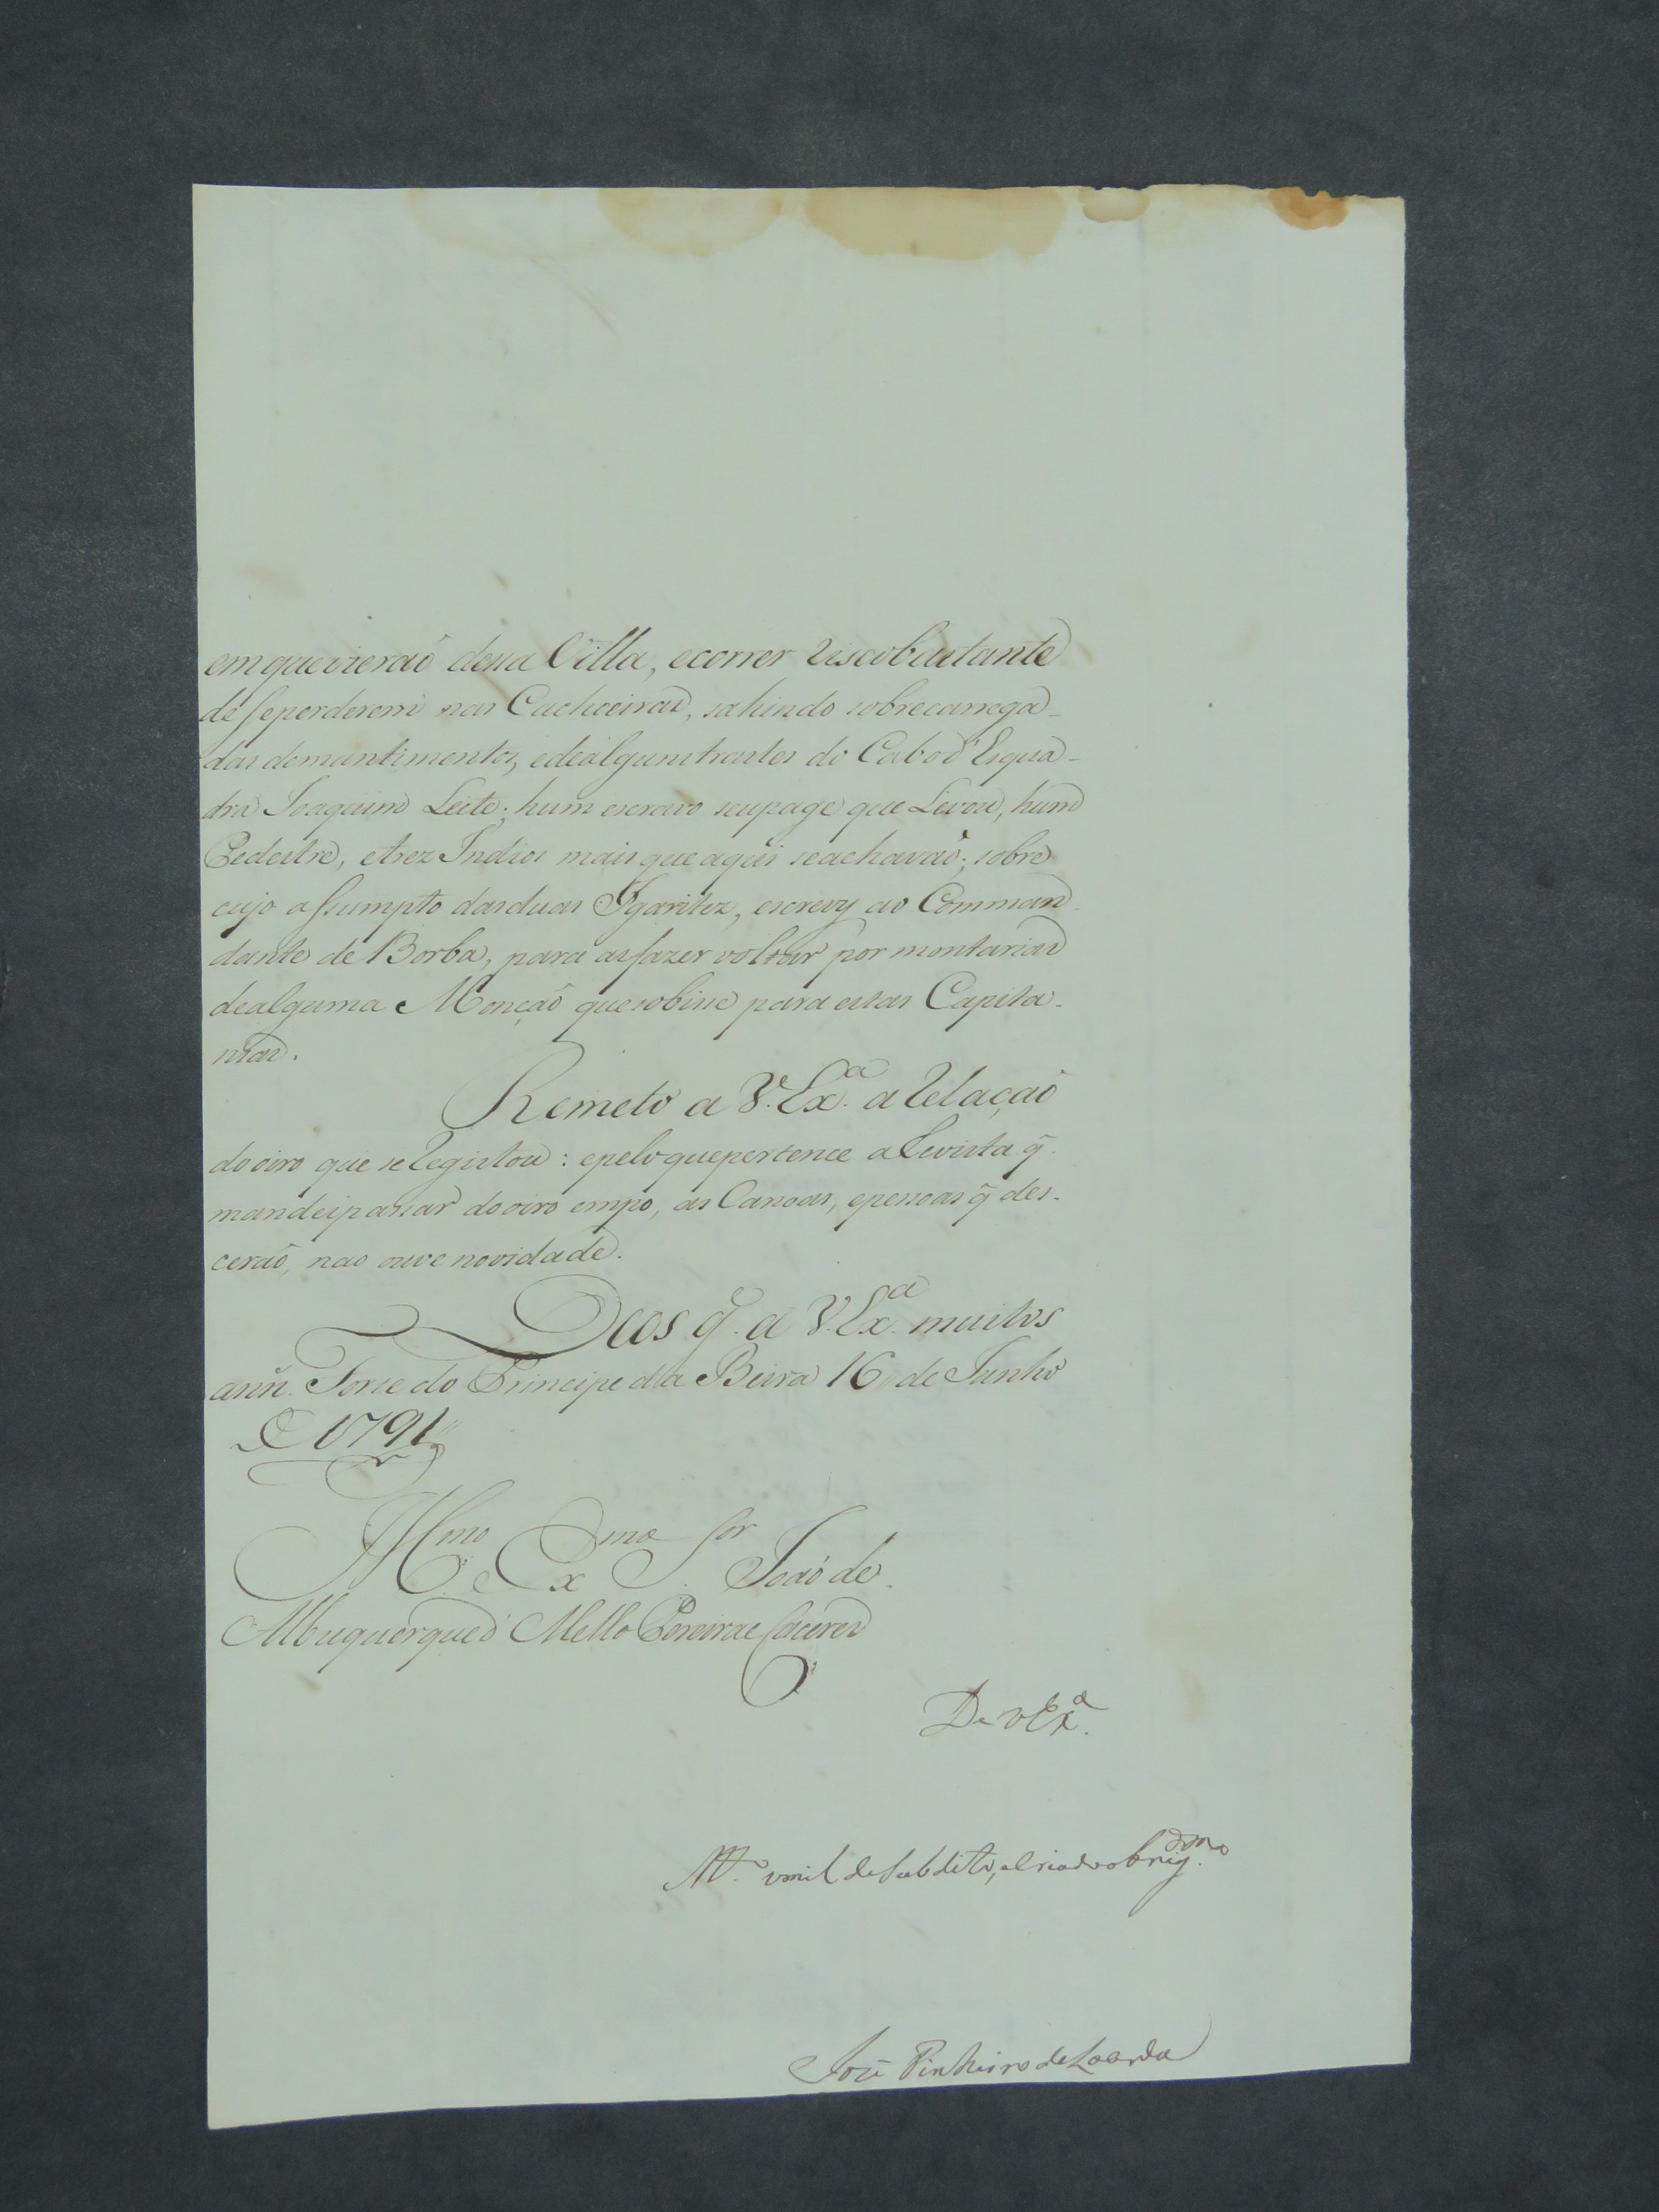 em que vieraõ dessa Villa, e correr risco bastante
de se perderem nas Cachoeiras, sahindo sobrecarrega-
das de mantimentos, e de alguns trastes do Cabo d'Esqua-
dra Joaquim Leite; hum escravo seu page que Levou, hum
Pedestre, e trez Indios mais que aqui se achavaõ; sobre
cujo assumpto das duas Ygaritez, escrevy ao Comman
dante de Borba, para as fazer voltar por montarias
de alguma Monçaõ que sobisse para estas Capita-
nias.
Remeto a V. Ex.ª a Relaçaõ
do oiro que se Registou: e pelo que pertence a Revista q̃
mandei passar do oiro em po, as Canoas, e pessoas q̃ des-
ceraõ, nao ouve novidade.
Deos g.e a V. Ex.ª muitos
ann. Forte do Principe da Beira 16 de Junho
de 1791
Ill.mo Ex.mo S.or Joaõ de
Albuquerque d' Mello Pereira e Caceres
De V Ex.ª
M.to umilde subdito, e criado obrig.dmo
Jozé Pinheiro de Lacerda